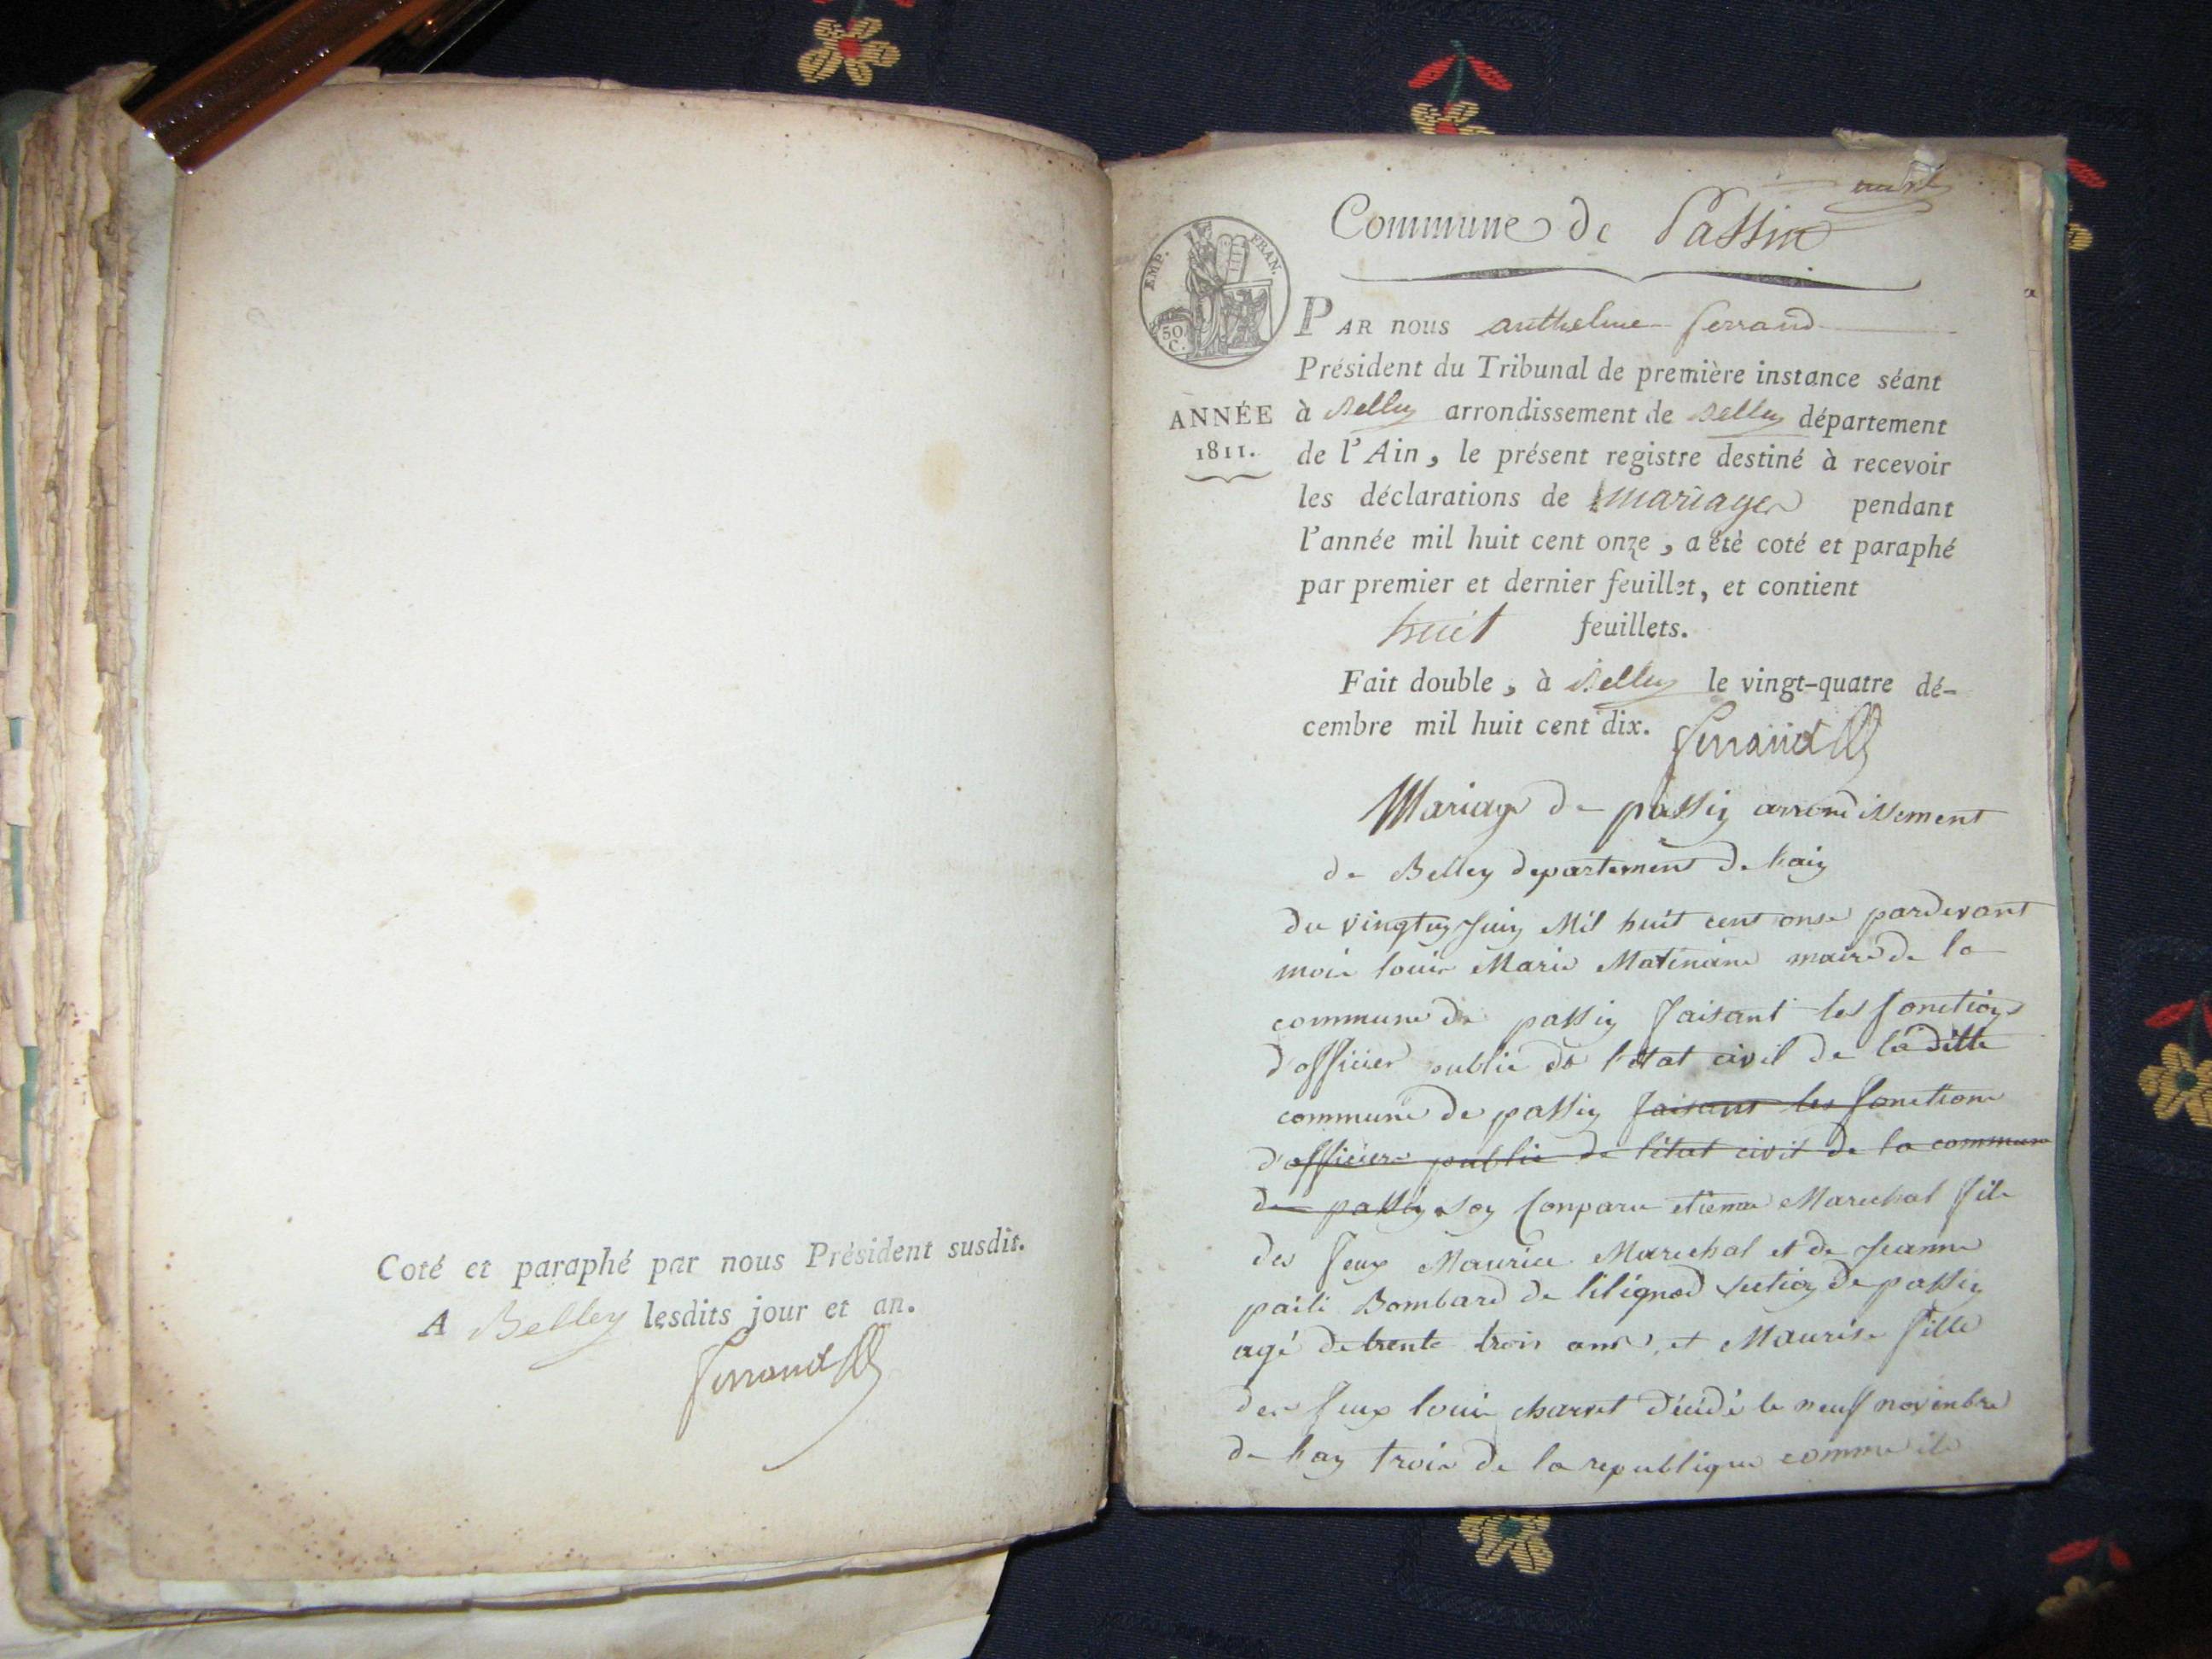 Coté et paraphé par nous Président susdit.
A Belley lesdits jour et an.
Ferrand
Commune de Passin
EMP. FRAN.
50 C.
ANNÉE
1811.
PAR nous anthelme ferrand
Président du Tribunal de première instance séant
à Belley arrondissement de Belley département
de l'Ain, le présent registre destiné à recevoir
les déclarations de mariages pendant
l'année mil huit cent onze, a été coté et paraphé
par premier et dernier feuillet, et contient
huit feuillets.
Fait double, à Belley le vingt-quatre dé-
cembre mil huit cent dix. Ferrand
Mariage de passin arrondissement
de Belley departement de lain
du vingt juin Mil huit cent onse pardevant
moi louis Marie maire de la
commune de passin faisant les fonctions
d'officier public de l'état civil de la ditte
commune de passin faisant les fonctions
d'officiers public de l'état civil de la commune
de passin son Conparu etienne Marechal fils
des feux Maurice Marechal et de Jeanne
Bombard de lilignod section de passin
agé de trente trois ans, et Maurise fille
des feux louis charvet décidé le neuf novembre
de lan trois de la republique comme il